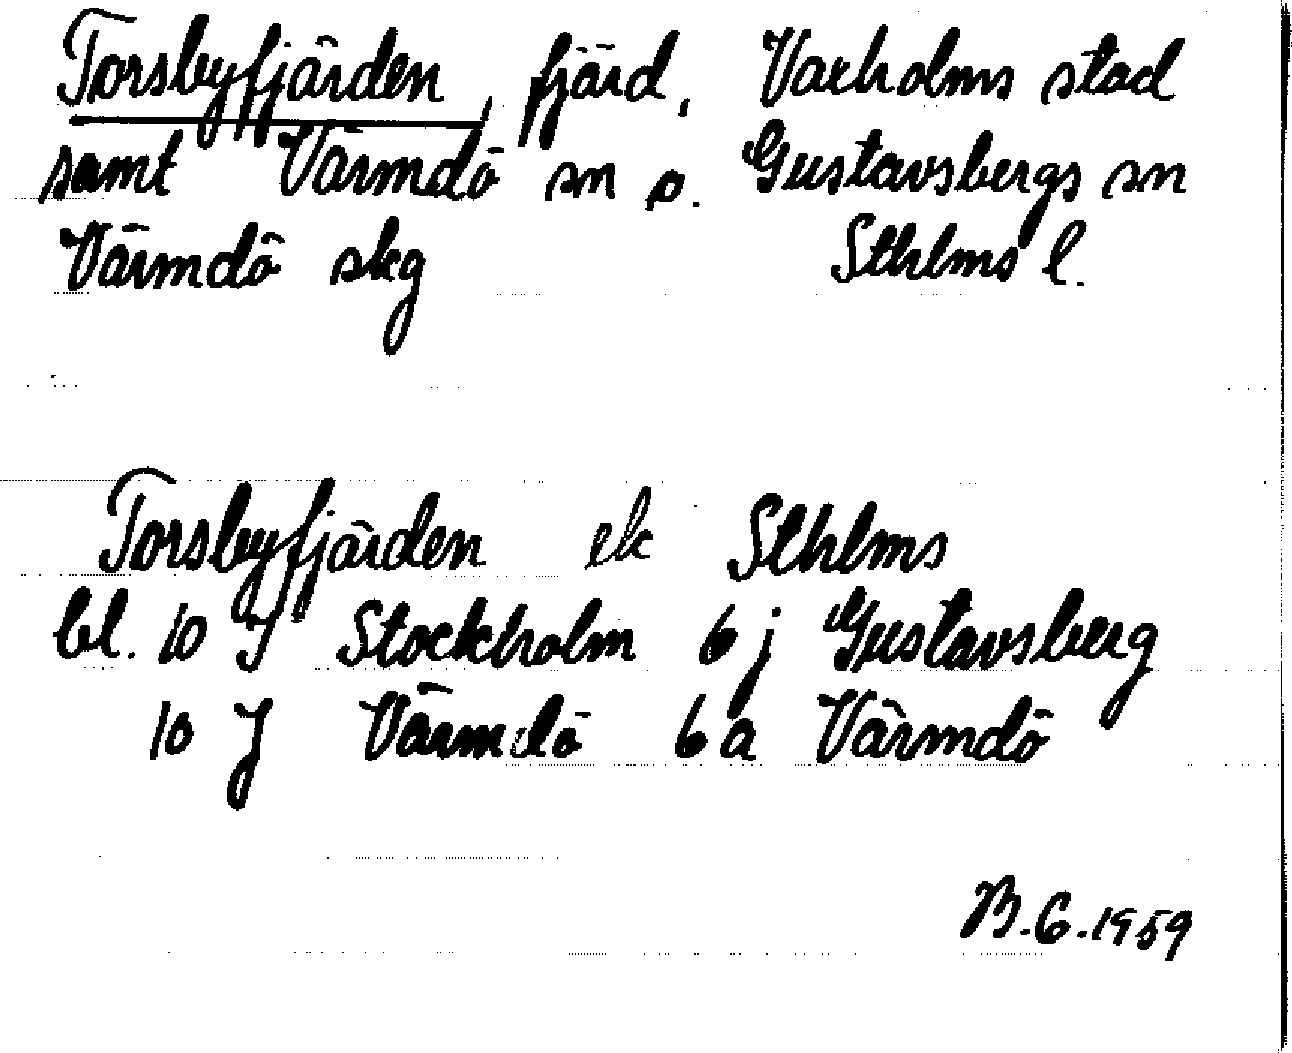 Torsbyfjärden, fjärd, Vaxholms stad
samt Värmdö sn o. Gustavsbergs sn
Värmdö skg Sthlms l.
Torsbyfjärden ek Sthlms
bl. 10 I Stockholm 6 j Gustavsberg
10 J Värmdö 6 a Värmdö
B.G.1959